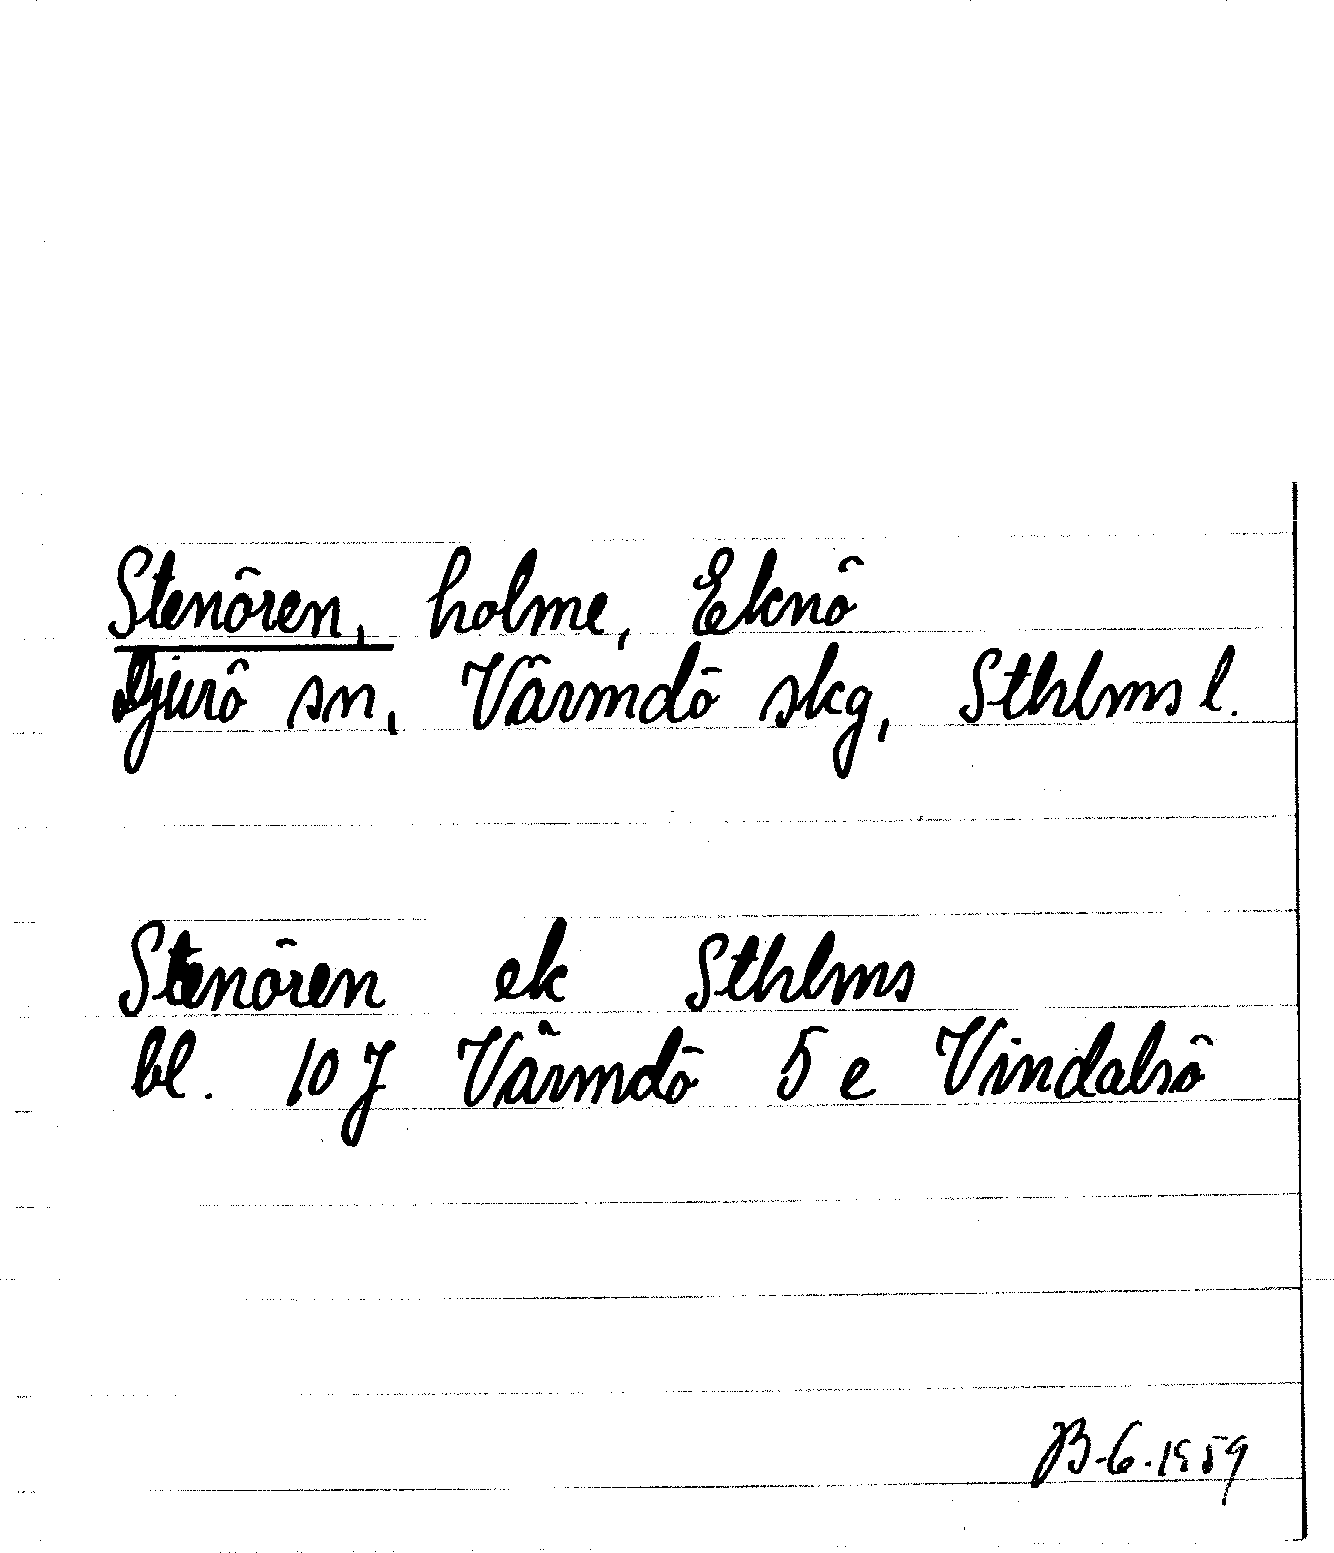 Stenören, holme, Eknö
Djurö sn, Värmdö skg, Sthlms l.
Stenören ek Sthlms
bl. 10 J Värmdö 5 e Vindalsö
B-G. 1959